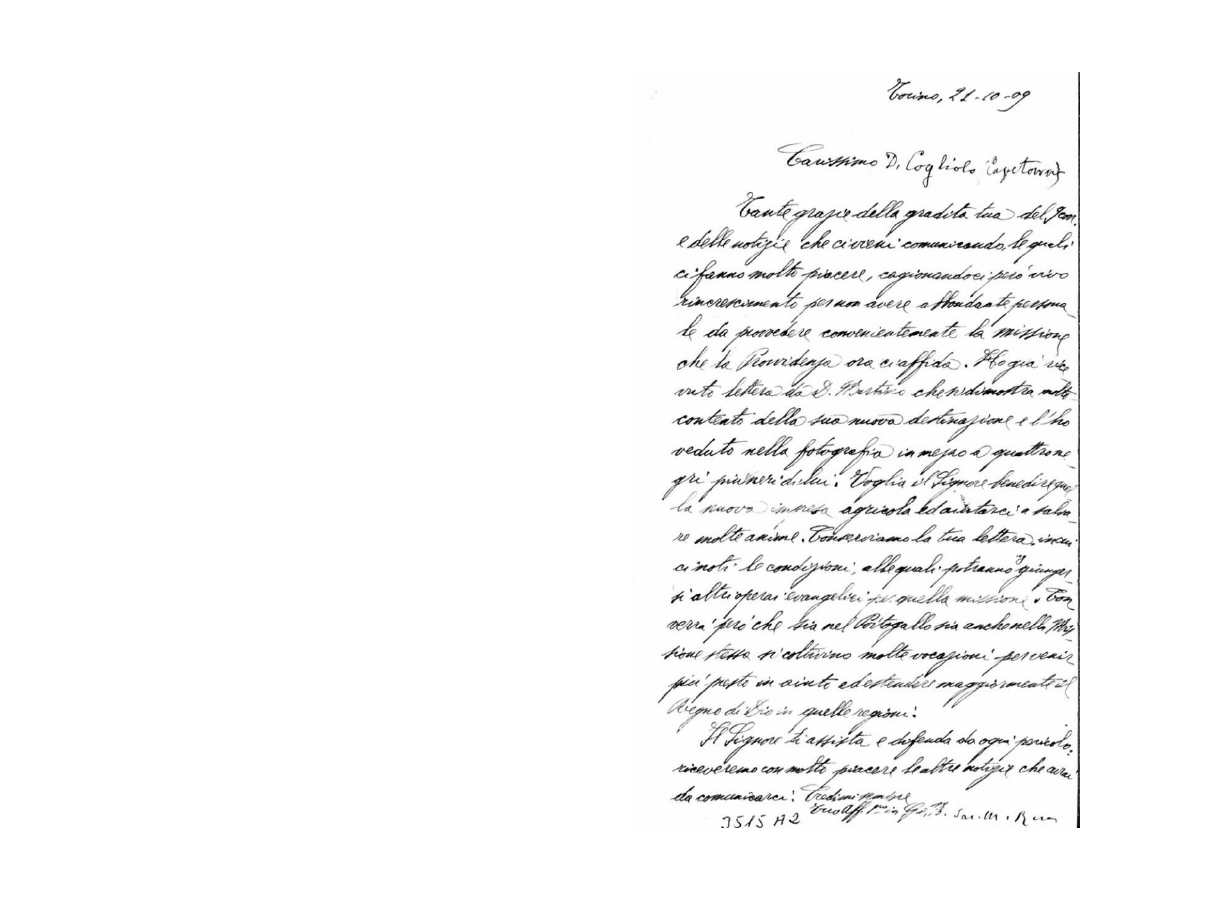 Torino, 21-10-09
Carissimo D. Cogliolo (Capetown)
Tante grazie della gradita tua del
e delle notizie che ci vieni comunicando, le quali
ci fanno molto piacere, cagionandoci però vivo
rincrescimento per non avere abbondante persona-
le da provvedere convenientemente la missione
che la Provvidenza ora ci affida. Ho già rice
vuto lettera da D. che si dimostra molto
contento della sua nuova destinazione e l'ho
veduto nella fotografia in mezzo a quattro ne-
gri più neri di lui. Voglia il Signore benedire quel
la nuova impresa agricola ed aiutarci a salva-
re molte anime. Conserviamo la tua lettera in cui
ci noti le condizioni, alle quali potranno giunger
si altri operai evangelici per quella missione. Con
verrà però che sia nel Portogallo sia anche nella Mis-
sione stessa si coltivino molte vocazioni per venir
più presto in aiuto ed estendere maggiormente il
Regno di Dio in quelle regioni.
Il Signore ti assista e difenda da ogni pericolo:
riceveremo con molto piacere le altre notizie che avrai
da comunicarci. Credimi sempre
Tuo Aff.mo in G. Sac. M. Rua
3515 A2